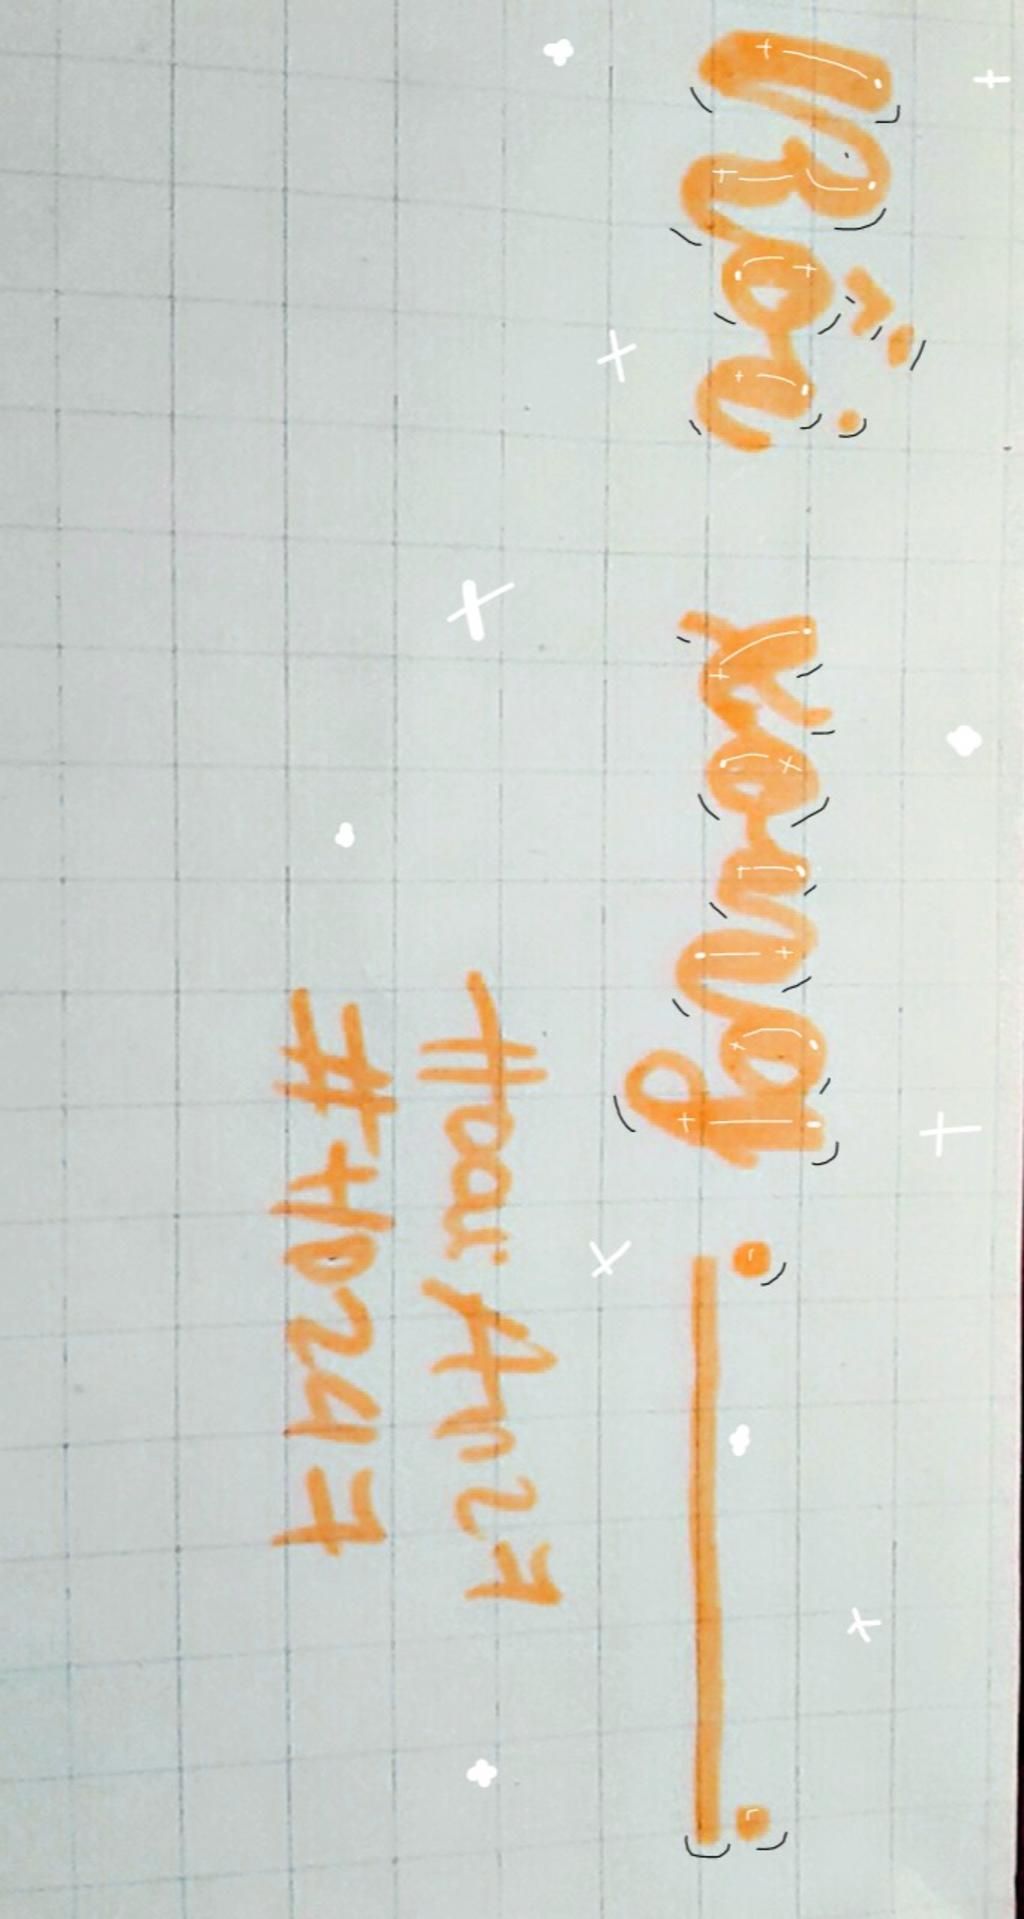 Rồi xong
Hoai An27
#HD247